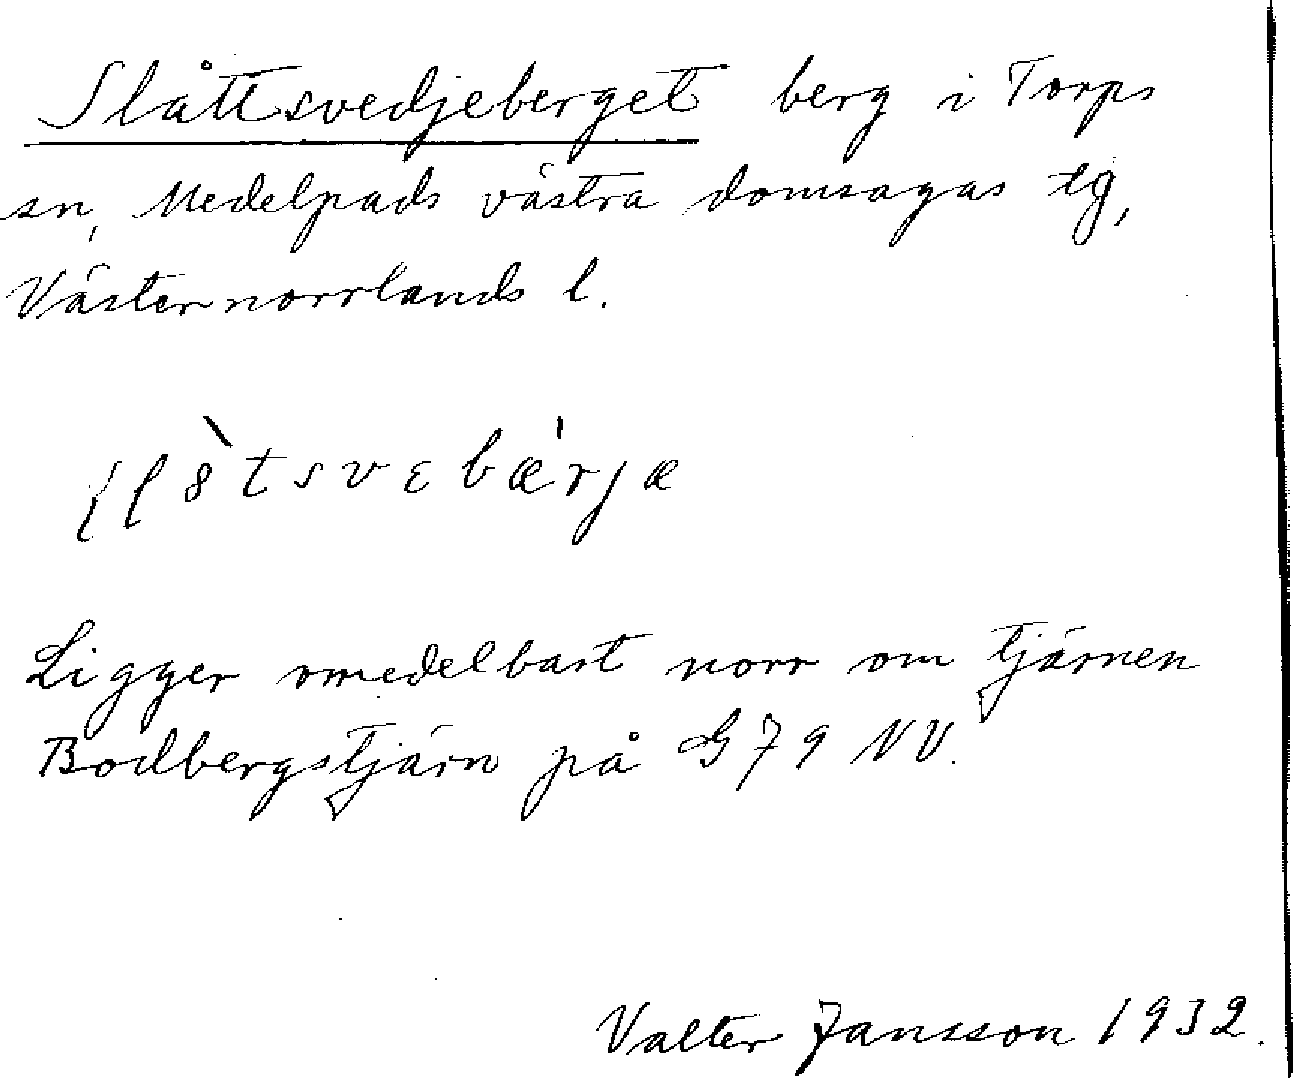 Slåttsvedjeberget berg i Torps
sn, Medelpads västra domsagas tg,
Västernorrlands l.
Ligger omedelbart norr om tjärnen
Bodbergstjärn på G 79 NV.
Valter Jansson 1932.